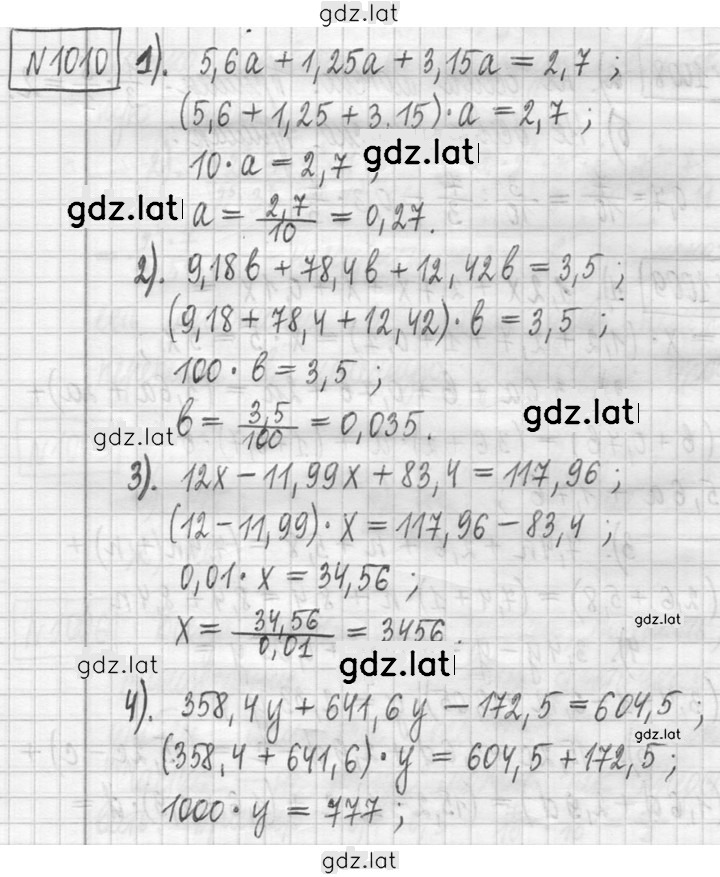 gdz.lat
N1010 1). 5,6a + 1,25a + 3,15a = 2,7 ;
(5,6 + 1,25 + 3.15)·a = 2,7 ;
10·a = 2,7 ; gdz.lat
gdz.lat a = 2,7/10 = 0,27.
2). 9,18в + 78,4в + 12,42в = 3,5 ;
(9,18 + 78,4 + 12,42)·в = 3,5 ;
100·в = 3,5 ;
gdz.lat в = 3,5/100 = 0,035. gdz.lat
3). 12x − 11,99x + 83,4 = 117,96 ;
(12 − 11,99)·x = 117,96 − 83,4 ;
0,01·x = 34,56 ;
x = 34,56/0,01 = 3456. gdz.lat
gdz.lat gdz.lat
4). 358,4y + 641,6y − 172,5 = 604,5 ;
gdz.lat
(358,4 + 641,6)·y = 604,5 + 172,5 ;
1000·y = 777 ;
gdz.lat